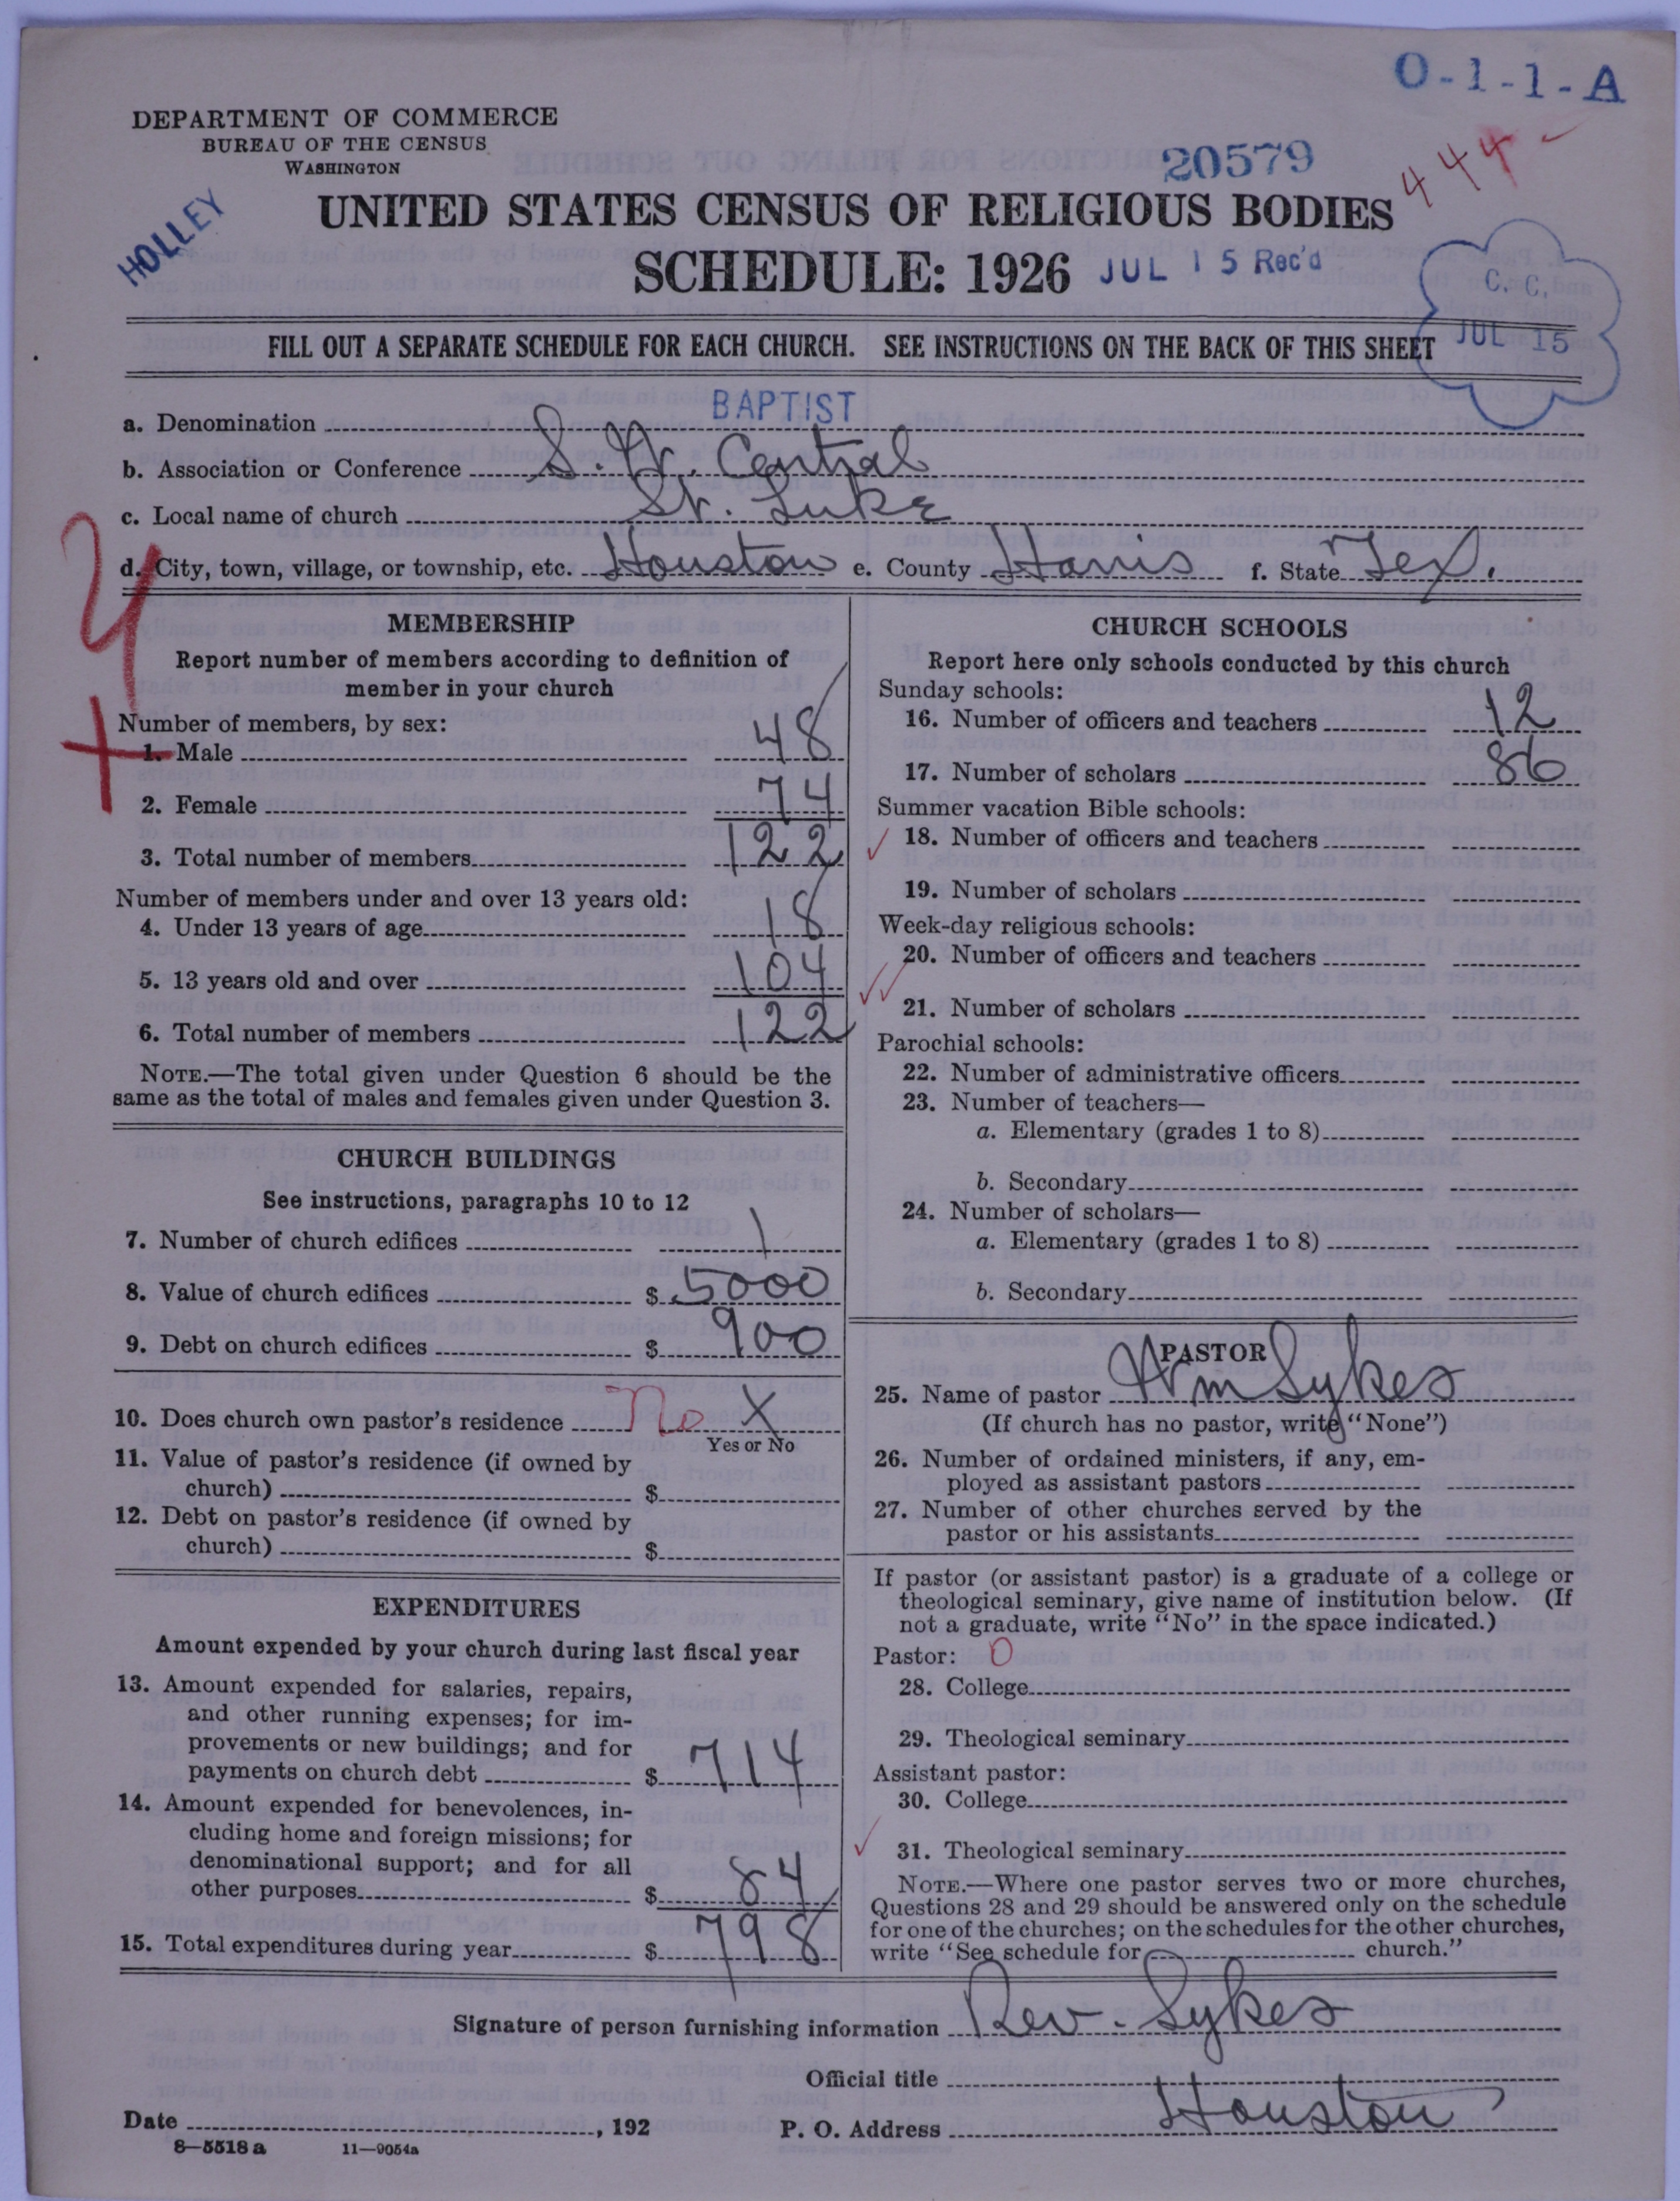 O-1-1-A
DEPARTMENT OF COMMERCE
BUREAU OF THE CENSUS
WASHINGTON
20579
444
HOLLEY
UNITED STATES CENSUS OF RELIGIOUS BODIES
SCHEDULE: 1926
JUL 15 Rec'd
C. C.
JUL 15
FILL OUT A SEPARATE SCHEDULE FOR EACH CHURCH. SEE INSTRUCTIONS ON THE BACK OF THIS SHEET
a. Denomination BAPTIST
b. Association or Conference S.W. Central
c. Local name of church St. Luke
d. City, town, village, or township, etc. Houston e. County Harris f. State Tex.
MEMBERSHIP
Report number of members according to definition of
member in your church
Number of members, by sex:
1. Male 48
2. Female 74
3. Total number of members 122
Number of members under and over 13 years old:
4. Under 13 years of age 18
5. 13 years old and over 104
6. Total number of members 122
NOTE.—The total given under Question 6 should be the
same as the total of males and females given under Question 3.
CHURCH BUILDINGS
See instructions, paragraphs 10 to 12
7. Number of church edifices 1
8. Value of church edifices $ 5000
9. Debt on church edifices $ 900
10. Does church own pastor's residence No X
Yes or No
11. Value of pastor's residence (if owned by
church) $
12. Debt on pastor's residence (if owned by
church) $
EXPENDITURES
Amount expended by your church during last fiscal year
13. Amount expended for salaries, repairs,
and other running expenses; for im-
provements or new buildings; and for
payments on church debt $ 714
14. Amount expended for benevolences, in-
cluding home and foreign missions; for
denominational support; and for all
other purposes $ 84
15. Total expenditures during year $ 798
CHURCH SCHOOLS
Report here only schools conducted by this church
Sunday schools:
16. Number of officers and teachers 12
17. Number of scholars 86
Summer vacation Bible schools:
18. Number of officers and teachers
19. Number of scholars
Week-day religious schools:
20. Number of officers and teachers
21. Number of scholars
Parochial schools:
22. Number of administrative officers
23. Number of teachers—
a. Elementary (grades 1 to 8)
b. Secondary
24. Number of scholars—
a. Elementary (grades 1 to 8)
b. Secondary
PASTOR
25. Name of pastor Wm Sykes
(If church has no pastor, write "None")
26. Number of ordained ministers, if any, em-
ployed as assistant pastors
27. Number of other churches served by the
pastor or his assistants
If pastor (or assistant pastor) is a graduate of a college or
theological seminary, give name of institution below. (If
not a graduate, write "No" in the space indicated.)
Pastor: 0
28. College
29. Theological seminary
Assistant pastor:
30. College
31. Theological seminary
NOTE.—Where one pastor serves two or more churches,
Questions 28 and 29 should be answered only on the schedule
for one of the churches; on the schedules for the other churches,
write "See schedule for church."
Signature of person furnishing information Rev. Sykes
Official title
Date , 192 P. O. Address Houston
8—5518 a 11—9054a